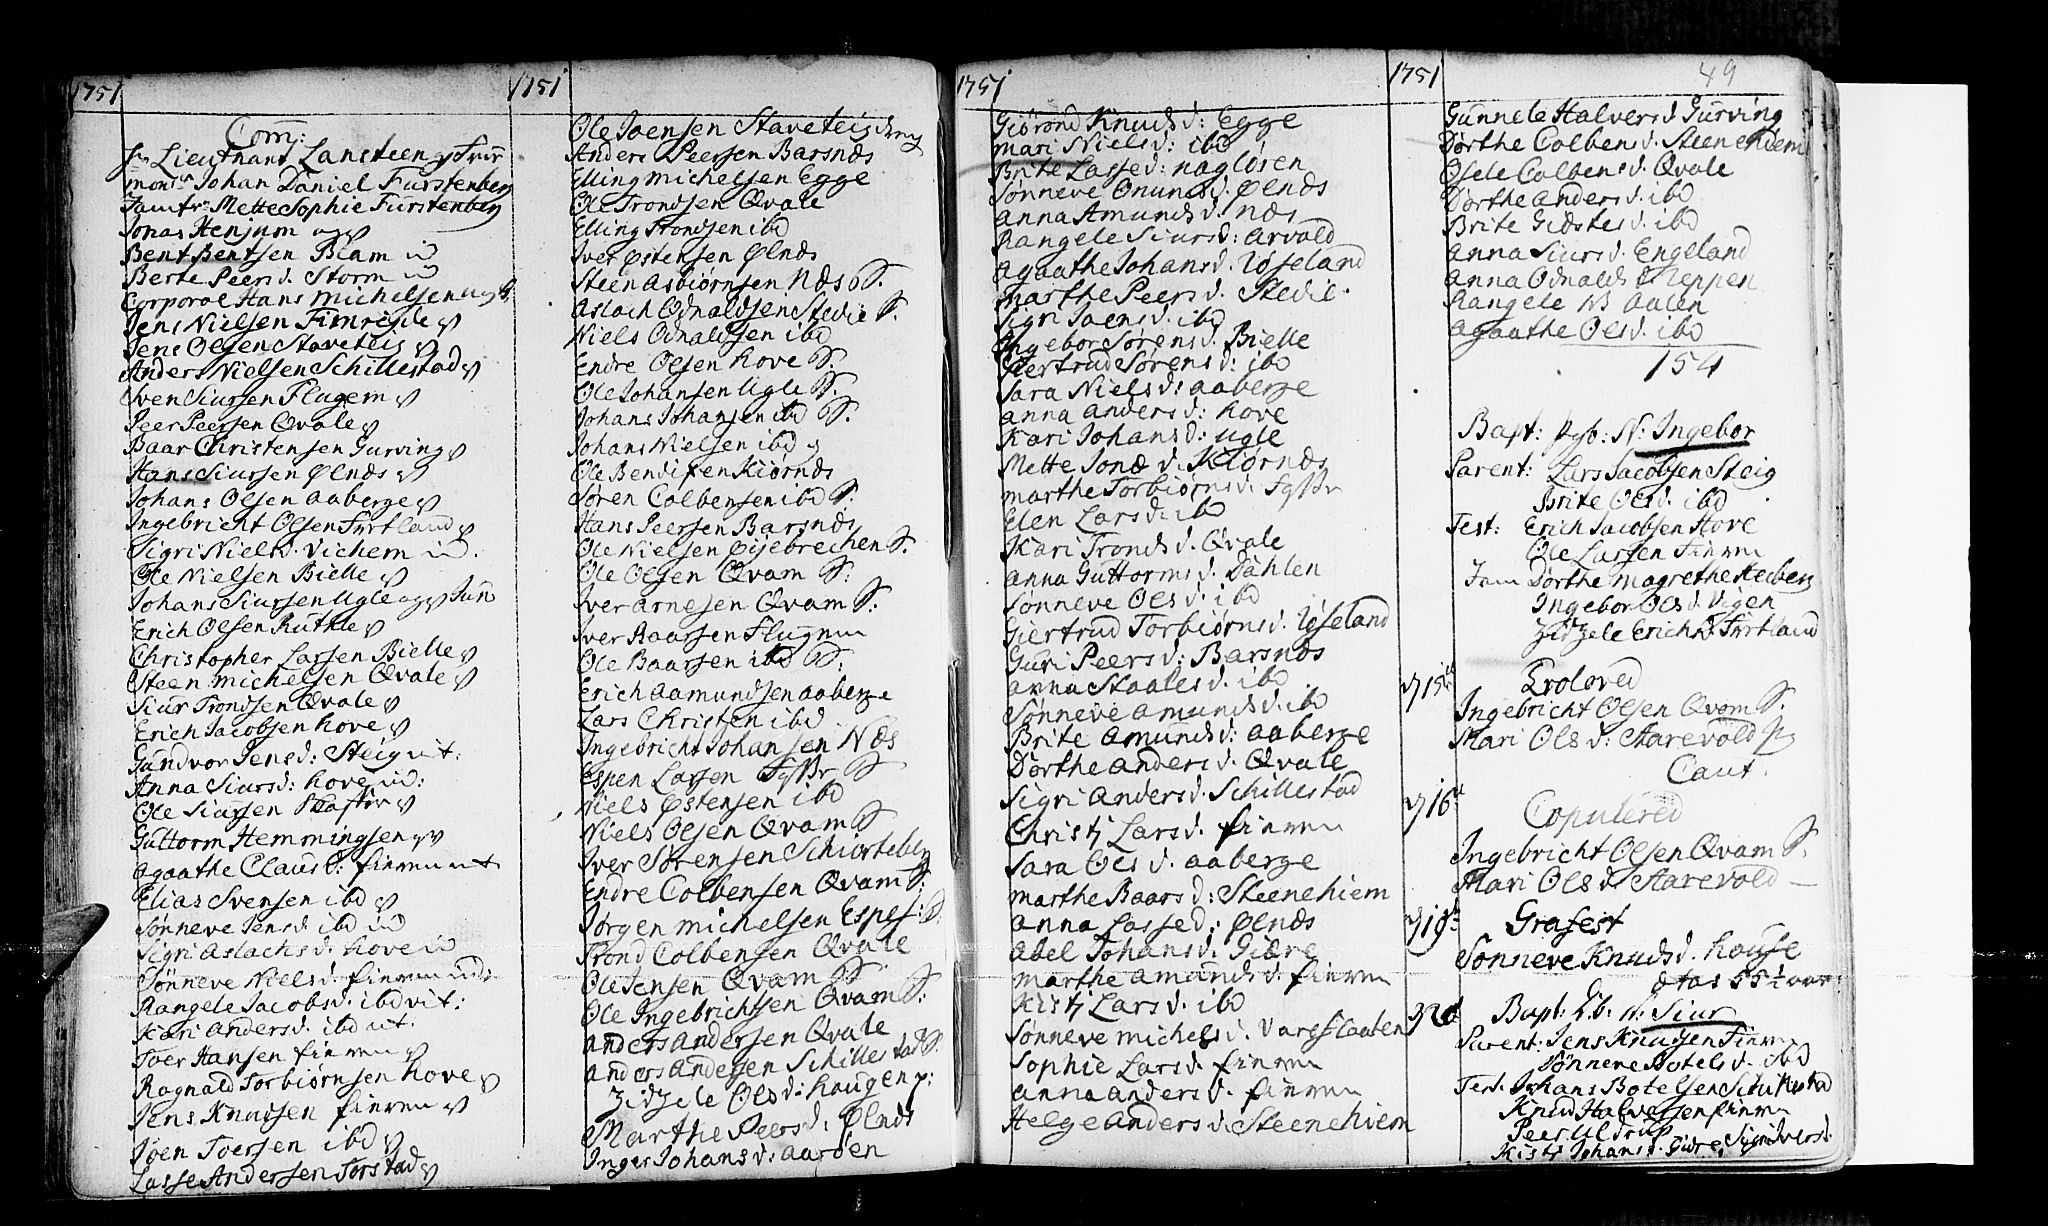 1751
Com:
Lieutnant Lansteen
mons Johan Daniel Fürstenberg
Jomfr Mette Sophie Fürstenberg
Jonas Henjum
Bent Bentsen Blam
Berte Peersd. Storm
Corporal Hans Michelsen
Jens Nielsen Fimreide
Jens Olsen Staveteis
Anders Nielsen Schillestad
Sven Siursen Flugem
Peer Peersen Qvale
Baar Christensen Gurving
Hans Siursen Ølnæs
Johans Olsen Aaberge
Ingebricht Olsen
Sigri Nielsd. Vichem
Ole Nielsen Bielle
Johans Siursen Ugle
Erich Olsen Rutle
Christopher Larsen Bielle
Steen Michelsen Qvale
Siur Trondsen Qvale
Erich Jacobsen Hove
Gundvor Jensd: Steig
Anna Siursd: Hove
Ole Siursen
Guttorm Hemmingsen
Agaathe Clausd:
Elias Svensen ibd
Sønneve Jensd. ibd
Sigri Aslachsd. Hove
Sønneve Nielsd.
Rangele Jacobsd. ibd
Kari Andersd. ibd
Iver Hansen
Ragnald Torbiørnsen Hove
Jens Knudsen
Joen Joersen ibd
Lasse Andersen Torstad
1751
Ole Joensen Staveteig
Anders Peersen Barsnæs
Elling Michelsen Egge
Ole Trondsen Qvale
Elling Trondsen ibd
Iver Østensen Ølnæs
Steen Asbiørnsen Næs S.
Aslach Odnaldsen Stedie S.
Niels Odnaldsen ibd
Endre Olsen Hove S.
Ole Johansen Ugle S.
Johans Johansen ibd S.
Johans Nielsen ibd
Ole Bendixen Kiørnæs
Søren Colbensen ibd S.
Hans Peersen Barsnæs
Ole Nielsen Øyebrechen S.
Ole Olsen Qvam S:
Iver Arnesen Qvam S:
Iver Baarsen Flugum
Ole Baarsen ibd S:
Erich Aamundsen Aaberge
Lars Christen ibd
Ingebricht Johansen Næs
Espen Larsen S
Niels Østensen ibd
Niels Olsen Qvam S
Iver Sørensen
Endre Colbensen Qvam S:
Jørgen Michelsen Espes: S.
Trond Colbensen Qvale
Ole Jensen Qvam S.
Ole Ingebrichtsen Qvam S:
Anders Andersen Qvale
Anders Andersen Schillestad S.
Zidzele Olsd: Haugen p:
Marthe Peersd: Ølnæs
Inger Johansd: Aarøen
1751
Giørond Knudsd: Egge
Mari Nielsd: ibd
Brite Lassed: Nagløren
Sønneve Onundsd. Ølnæs
Anna Amundsd. Næs
Rangele Siursd: Arvold
Agaathe Johansd. Løseland
Marthe Peersd. Stedie.
Sigri Joensd. ibd
Ingebor Sørensd. Bielle
Giertrud Sørensd: ibd
Sara Nielsd: Aaberge
Anna Andersd: Hove
Kari Johansd: Ugle
Mette Jonæd. Kiørnæs
Marthe Torbiørnsd.
Elen Larsd: ibd
Kari Trondsd. Qvale
Anna Guttormsd. Dahlen
Sønneve Olsd. ibd
Giertrud Torbiørnsd. Løseland
Guri Peersd: Barsnæs
Anna Staalesd. ibd
Sønneve Amundsd. ibd
Brite Amundsd: Aaberge
Dorthe Andersd. Qvale
Sigri Andersd. Schillestad
Christj Larsd.
Sara Olsd. Aaberge
Marthe Baarsd: Steenehiem
Anna Lassed: Ølnæs
Abel Johansd. Giære
Marthe Amundsd.
Kistj Larsd. ibd
Sønneve Michelsd. Vargeslaaten
Sophie Larsd.
Anna Andersd.
Helge Andersd. Steenehiem
1751
49
Gunnele Halversd Gurving
Dorthe Colbensd. Steenehiem
Osele Colbensd. Qvale
Dorthe Andersd. ibd
Brite Giøstesd. ibd
Anna Siursd. Engeland
Anna Odnaldsd Reppen
Rangele Aalen
Agaathe Olsd. ibd
154
Bapt: N: Ingebor
Parent: Lars Jacobsen Steig
Brite Olsd. ibd
Test: Erich Jacobsen Hove
Ole Larsen
Jom Dorthe Magrethe Heiberg
Ingebor Olsd. Vigen
Zidzele Erichsd
15 Troloved
Ingebricht Olsen Qvam S.
Mari Olsd: Aarevold
Caut.
16 Copulered
Ingebricht Olsen Qvam S.
Mari Olsd. Aarevold
19 Grafest
Sønneve Knudsd. House
ætas 55 1/2 aar
Bapt: N: Siur
Parent: Jens Knudsen
Sønneve Botelsd. ibd
Test. Johans Botelsen
Knud Halvorsen
Peer Uldrup
Kistj Johansd. Giære,